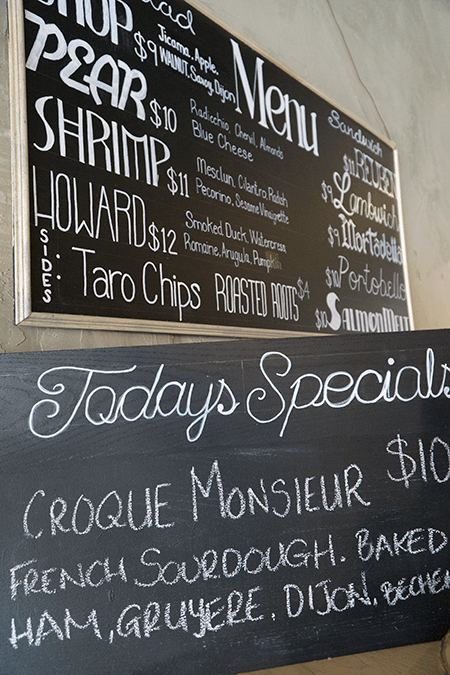 Salad
CHOP $9 Jicama, Apple,
WALNUT, Savoy, Dijon
PEAR $10 Radicchio, Chervil, Almonds
Blue Cheese
SHRIMP $11 Mesclun, Cilantro, Radish
Pecorino, Sesame Vinaigrette
HOWARD $12 Smoked Duck, Watercress
Romaine, Arugula, Pumpkin
SIDES: Taro Chips ROASTED ROOTS $4
Menu
Sandwich
$11 REUBEN
$9 Lambwich
$9 Mortadella
$10 Portobello
SALMON MELT
Todays Specials
CROQUE MONSIEUR $10
FRENCH SOURDOUGH. BAKED
HAM, GRUYERE. DIJON, BECHEM